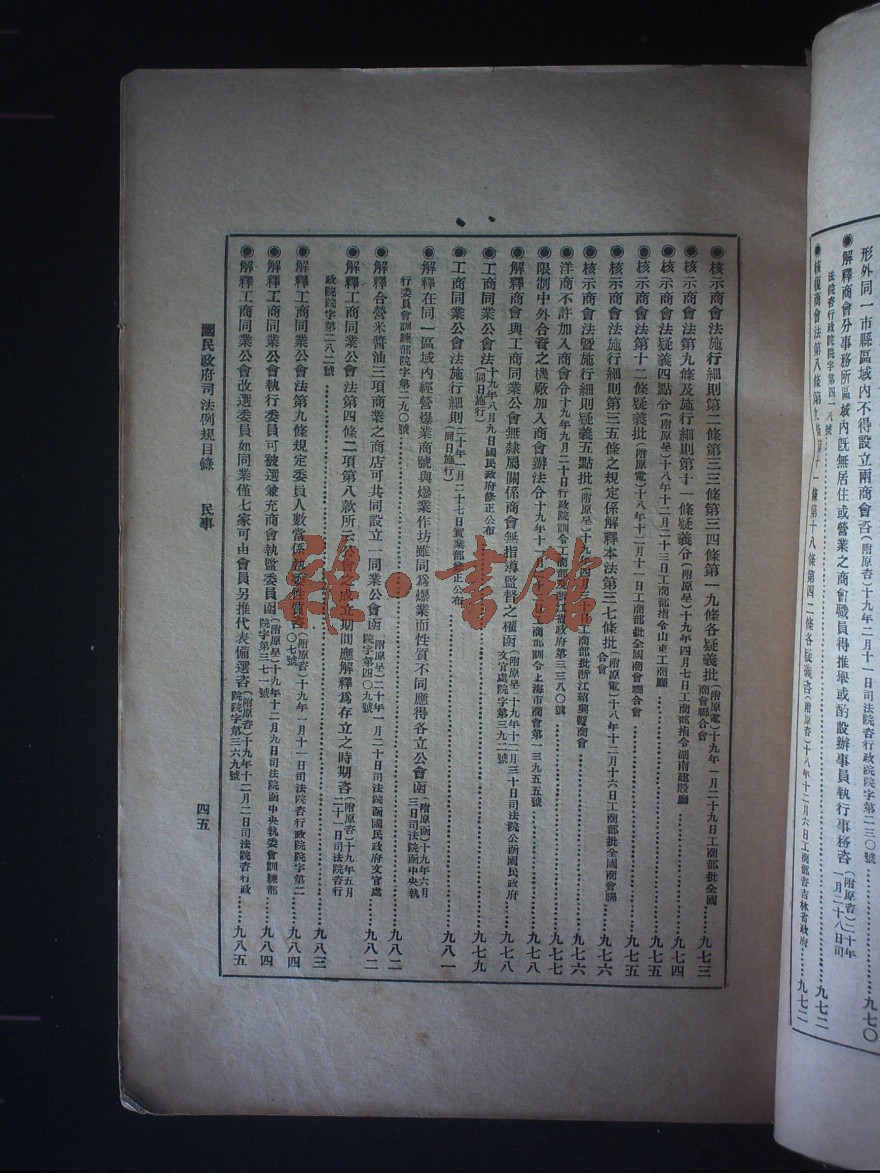 形外同一市縣區域內不得設立兩商會咨(附原咨)
九七〇
◉解釋商會分事務所區域內旣無居住或營業之商會職員得推舉或酌設辦事員執行事務咨(附原咨)二十年一月二十八日司
法院咨行政院院字第四一八號
九七二
九七二
◉核示商會法施行細則第二條第三三條第三四條第一九條各疑義批(附原電)十九年一月二十九日工商部批全國商會聯合會
九七三
◉核示商會法第九條及施行細則第十一條疑義令(附原呈)十九年四月七日工商部指令湖南建設廳
九七四
◉核示商會法疑義四點令(附原呈)十八年十二月二十三日工商部指令山東工商廳
九七五
◉核示商會法第十二條疑義批(附原電)十八年十二月十一日工商部批全國商會聯合會
九七五
◉核示商會法施行細則第三五條之規定係解釋本法第三七條批(附原電)十八年十二月十六日工商部批全國商會聯合會
九七六
◉核示商會法曁施行細則疑義五點批(附原呈)十九年四月三十日工商部批浙江紹興縣商會
九七六
◉洋商不許加入商會令十九年九月二十日行政院訓令工商部及浙江省政府第三三八〇號
九七七
◉限制中外合資之機廠加入商會辦法令十九年十一月
日工商部訓令上海市商會第一三九五五號
九七八
◉解釋商會與工商同業公會無隸屬關係商會無指導監督之權函(附原呈)十九年十二月三十日司法院公函國民政府文官處院字第三九二號
九七八
◉工商同業公會法十九年八月九日國民政府修正公布(同日施行)
九七九
◉工商同業公會法施行細則二十年一月二十七日實業部修正公布(同日施行)
九八一
◉解釋在同一區域內經營爆業商號與爆業作坊雖同爲爆業而性質不同應得各立公會函(附原函)十九年六月三日司法院函中央執
行委員會訓練部院字第二九〇號
九八二
◉解釋合營米醬油三項商業之商店可共同設立一同業公會函(附原呈)二十年一月二十日司法院函國民政府文官處院字第四〇九號
九八二
◉解釋工商同業公會法第四條二項第八款所云公會之成立期間應解釋爲存立之時期咨(附原咨)十九年五月二十一日司法院咨行
政院院字第二八二號
九八三
◉解釋工商同業公會法第九條規定委員人數當係執委性質咨(附原咨)十九年一月十一日司法院咨行政院院字第二〇七號
九八四
◉解釋工商同業公會執行委員可被選兼充商會執監委員函(附原呈)十九年十二月九日司法院函中央執委會訓練部院字第三七一號
九八四
◉解釋工商同業公會改選委員如同業僅七家可由會員另推代表備選咨(附原咨)十九年十二月二日司法院咨行政院院字第三六九號
九八五
國民政府司法例規目錄 民事 四五